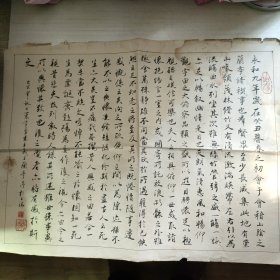 永和九年歲在癸丑暮春之初會于會稽山陰之
蘭亭脩禊事也群賢畢至少長咸集此地有崇
山峻領茂林脩竹又有清流激湍映帶左右引以為
流觴曲水列坐其次雖無絲竹管弦之盛一觴一詠
亦足以暢敘幽情是日也天朗氣清惠風和暢仰
觀宇宙之大俯察品類之盛所以遊目騁懷足以極
視聽之娛信可樂也夫人之相與俯仰一世或取諸
懷抱悟言一室之內或因寄所託放浪形骸之外雖
趣舍萬殊靜躁不同當其欣於所遇暫得於己快然
自足不知老之將至及其所之既惓情隨事遷
感慨係之矣向之所欣俛仰之間以為陳迹猶不
能不以之興懷況脩短隨化終期於盡古人云死
生亦大矣豈不痛哉每攬昔人興感之由若合一
契未嘗不臨文嗟悼不能喻之於懷固知一死
生為虛誕齊彭殤為妄作後之視今亦由今之視
昔悲夫故列敘時人錄其所述雖世殊事異
所以興懷其致一也後之攬者亦將有感於斯
文